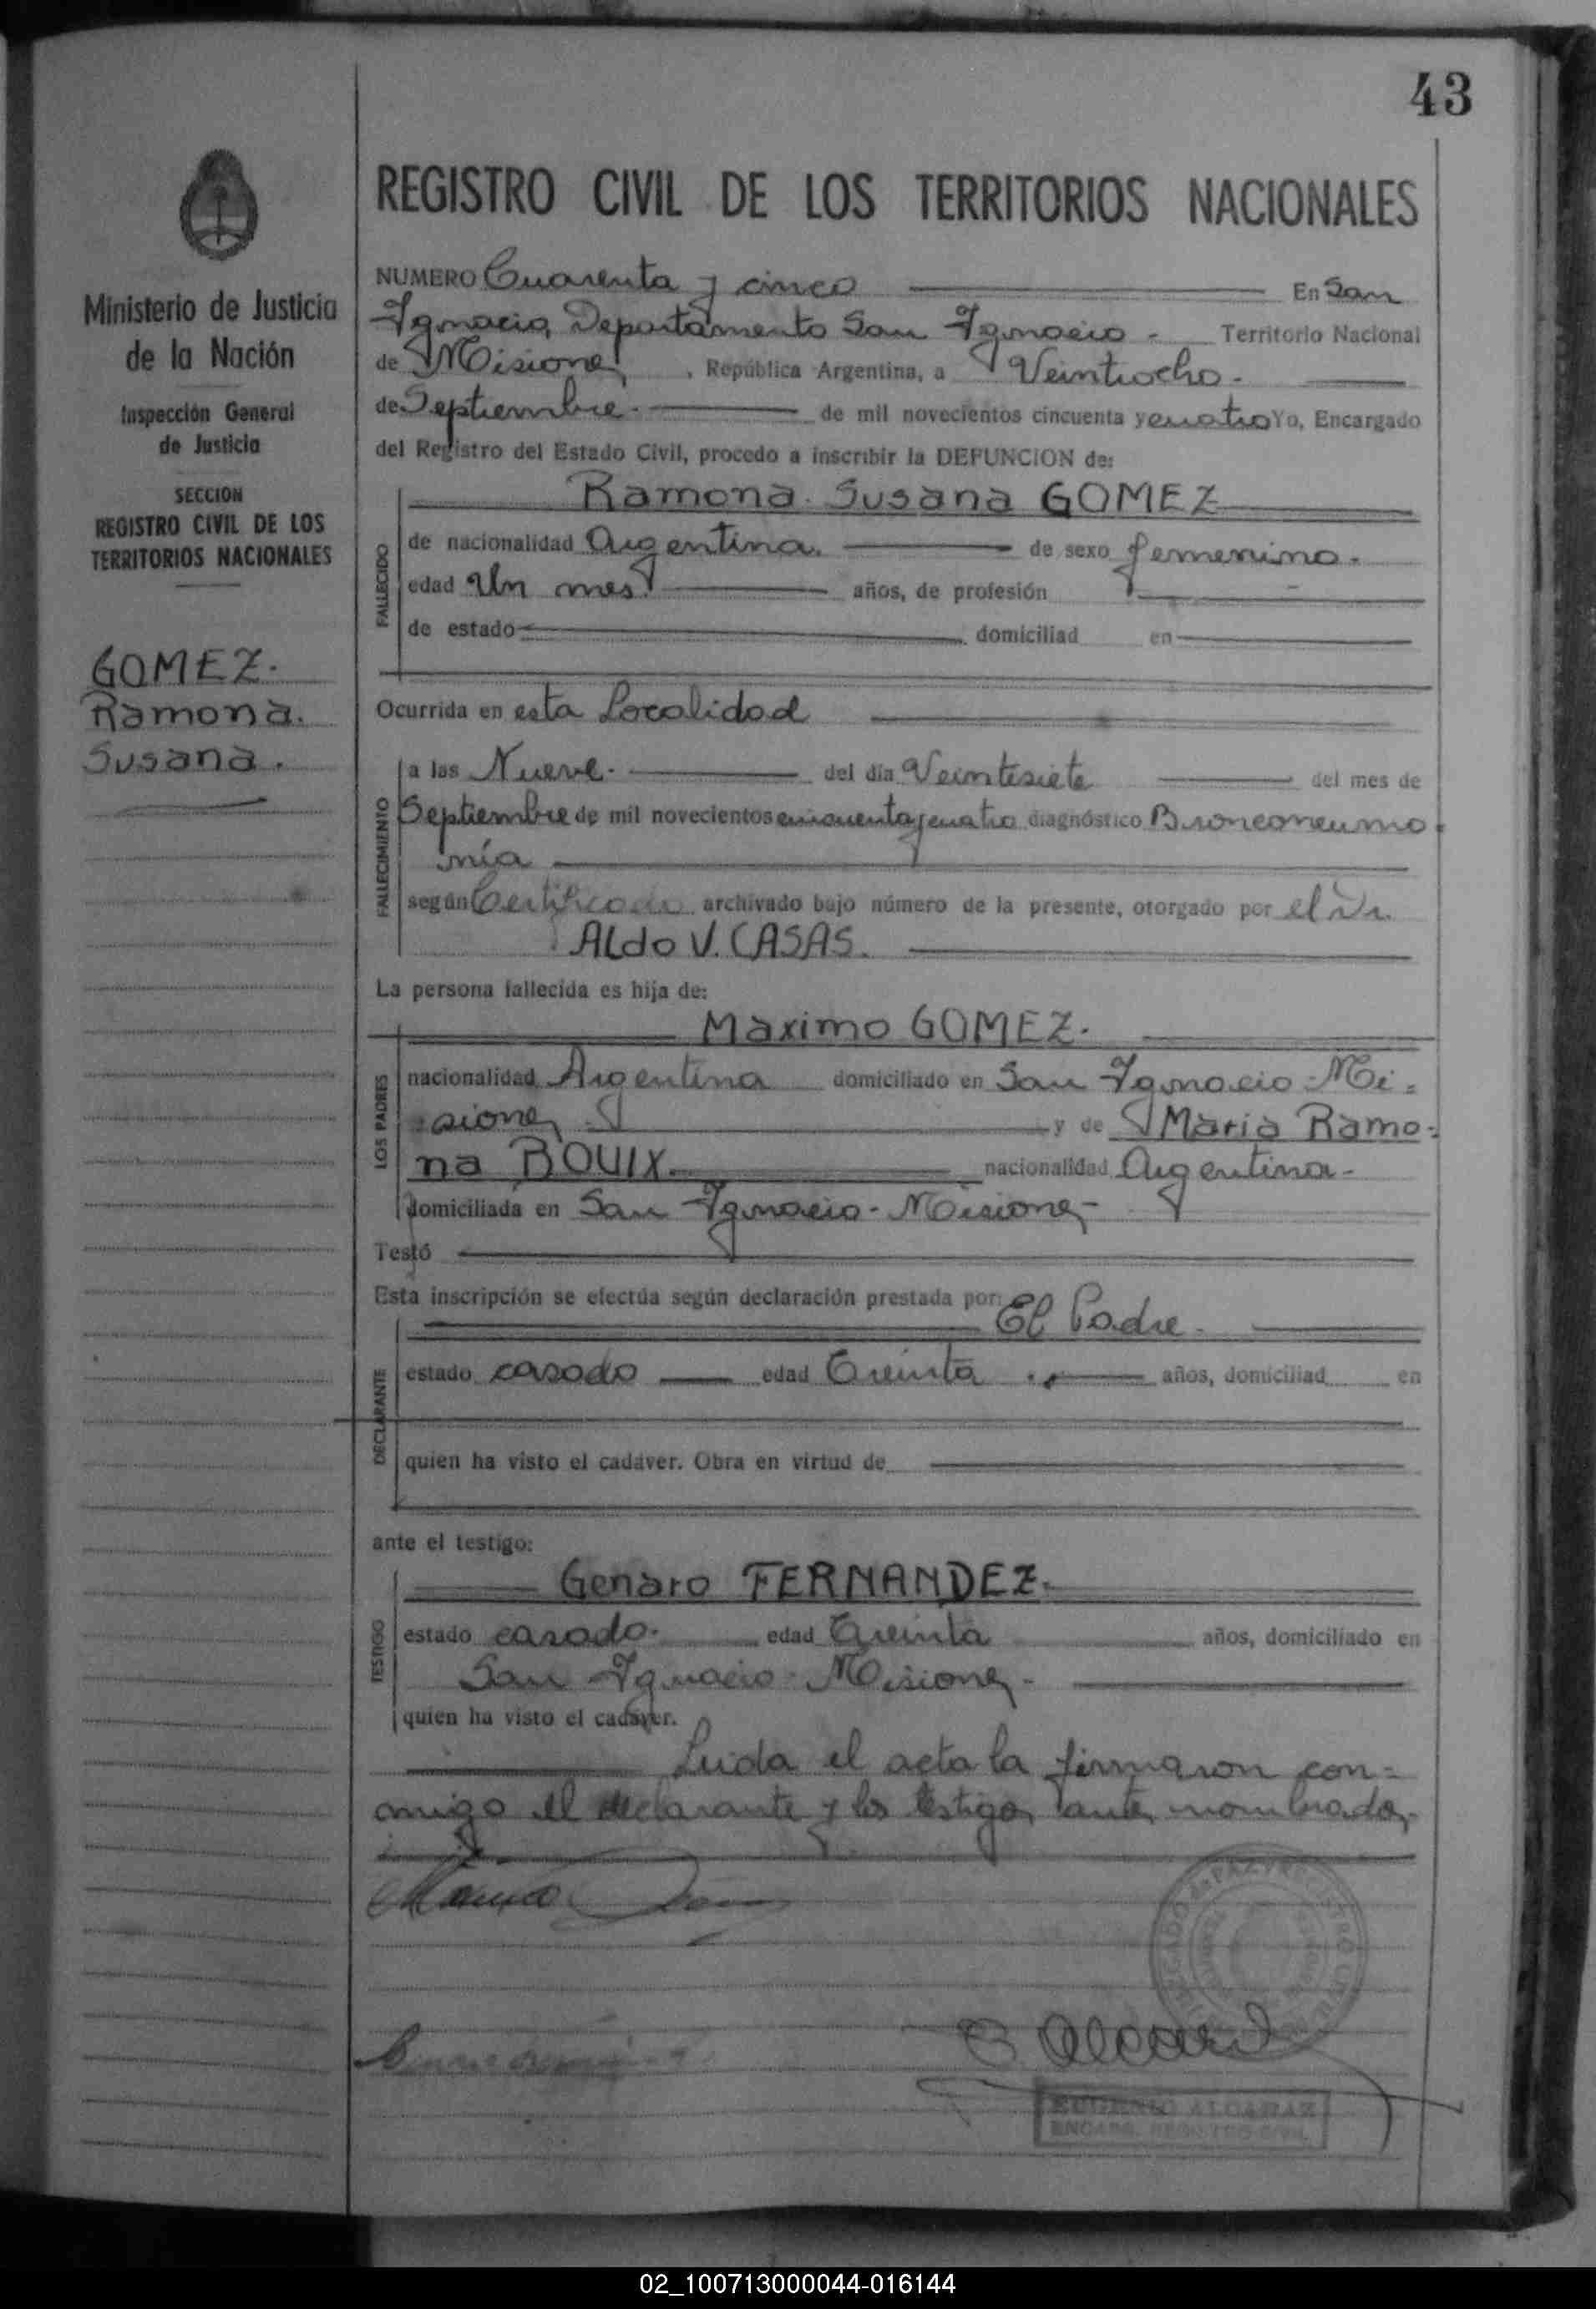 43
REGISTRO CIVIL DE LOS TERRITORIOS NACIONALES
Ministerio de Justicia
de la Nación
Inspección General
de Justicia
SECCION
REGISTRO CIVIL DE LOS
TERRITORIOS NACIONALES
GOMEZ.
Ramona.
Susana.
NUMERO Cuarenta y cinco En San
Ignacio, Departamento San Ignacio - Territorio Nacional
de Misiones, República Argentina, a Veintiocho.
de Septiembre. de mil novecientos cincuenta y cuatro Yo, Encargado
del Registro del Estado Civil, procedo a inscribir la DEFUNCION de:
Ramona Susana GOMEZ
FALLECIDO
de nacionalidad Argentina. de sexo femenino.
edad Un mes. años, de profesión
de estado domiciliad en
Ocurrida en esta Localidad
FALLECIMIENTO
a las Nueve. del día Veintisiete del mes de
Septiembre de mil novecientos cincuenta y cuatro diagnóstico Bronconeumo
nía
según Certificado archivado bajo número de la presente, otorgado por el Dr.
ALdo V. CASAS.
La persona fallecida es hija de:
Maximo GOMEZ.
LOS PADRES
nacionalidad Argentina domiciliado en San Ignacio - Mi=
=siones y de Maria Ramo=
na BOUIX. nacionalidad Argentina-
domiciliada en San Ignacio - Misiones-
Testó
Esta inscripción se efectúa según declaración prestada por: El Padre.
DECLARANTE
estado casado edad Treinta años, domiciliad en
quien ha visto el cadáver. Obra en virtud de
ante el testigo:
Genaro FERNANDEZ.
TESTIGO
estado casado. edad Treinta años, domiciliado en
San Ignacio - Misiones-
quien ha visto el cadáver.
Leida el acta la firmaron con=
migo el declarante y los testigos antes nombrados-
E. Alcaraz
EUGENIO ALCARAZ
ENCARG. REGISTRO CIVIL
02_100713000044-016144